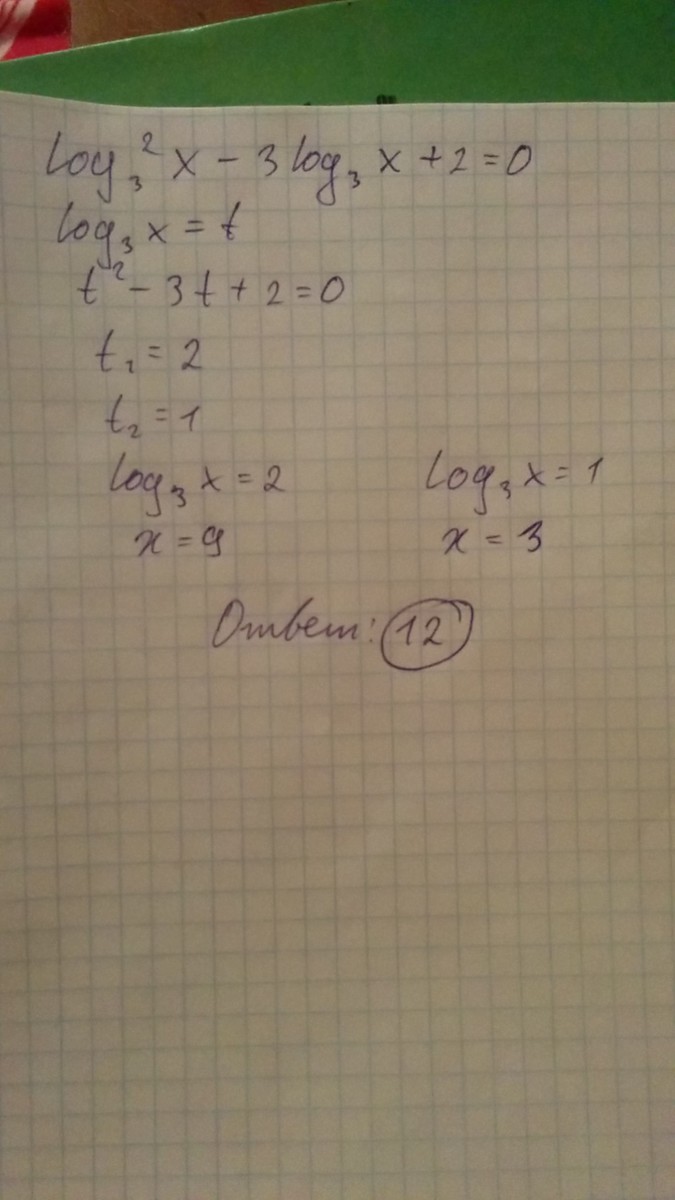 log₃²x − 3log₃x + 2 = 0
log₃x = t
t² − 3t + 2 = 0
t₁ = 2
t₂ = 1
log₃x = 2 log₃x = 1
x = 9 x = 3
Ответ: 12